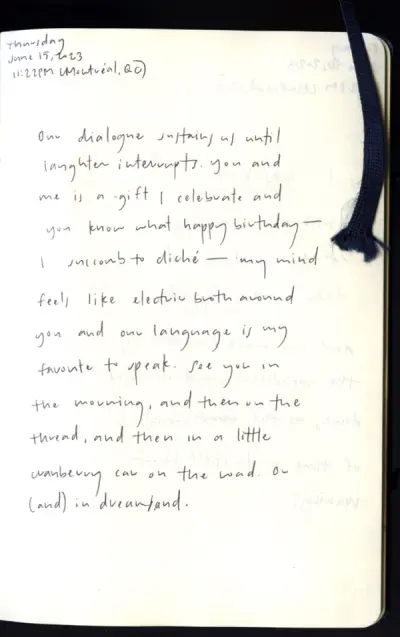 Thursday
June 15, 2023
11:22PM (Montréal, QC)
Our dialogue sustains us until
laughter interrupts. you and
me is a gift I celebrate and
you know what happy birthday—
I succumb to cliché — my mind
feels like electric broth around
you and our language is my
favourite to speak. See you in
the morning, and then on the
thread, and then in a little
cranberry car on the road. Or
(and) in dreamland.